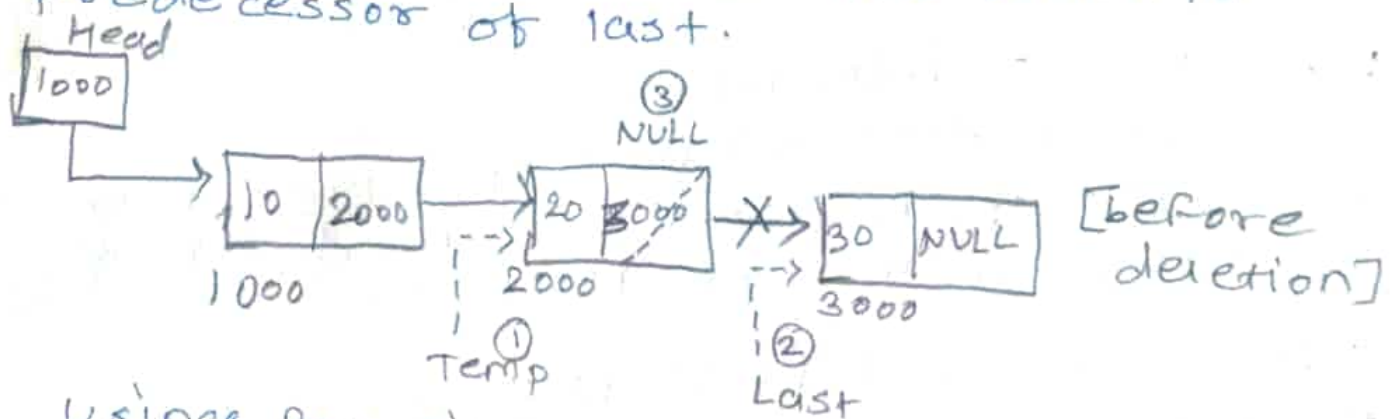 of last.
Head
1000
③
NULL
10 2000
20 3000
30 NULL
[before
deletion]
1000
2000
3000
①
Temp
②
Last
Using